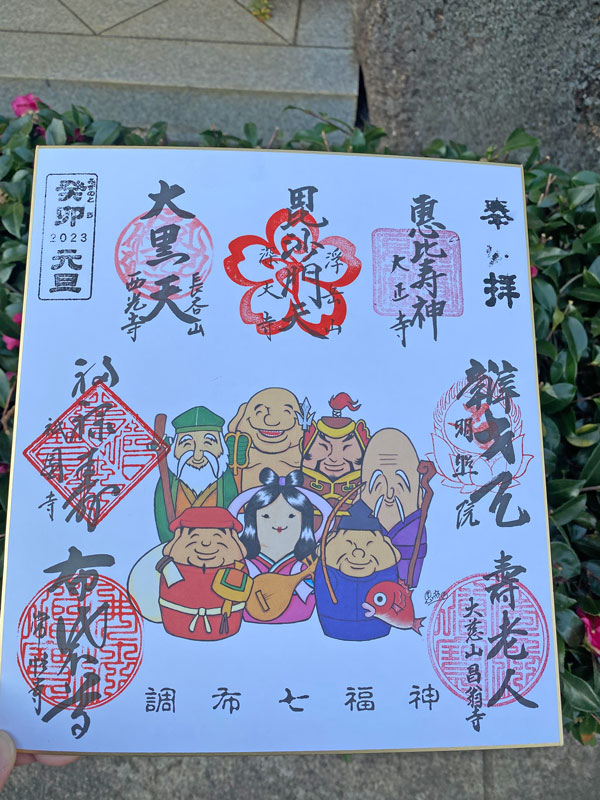 奉拝
惠比寿神
大正寺
毘沙門天
浮岳山
深大寺
大黒天
長谷山
西光寺
みずのと う
癸卯
2023
元旦
辨才天
明照院
壽老人
大慈山昌翁寺
福禄寿
祇園寺
布袋尊
常性寺
調布七福神